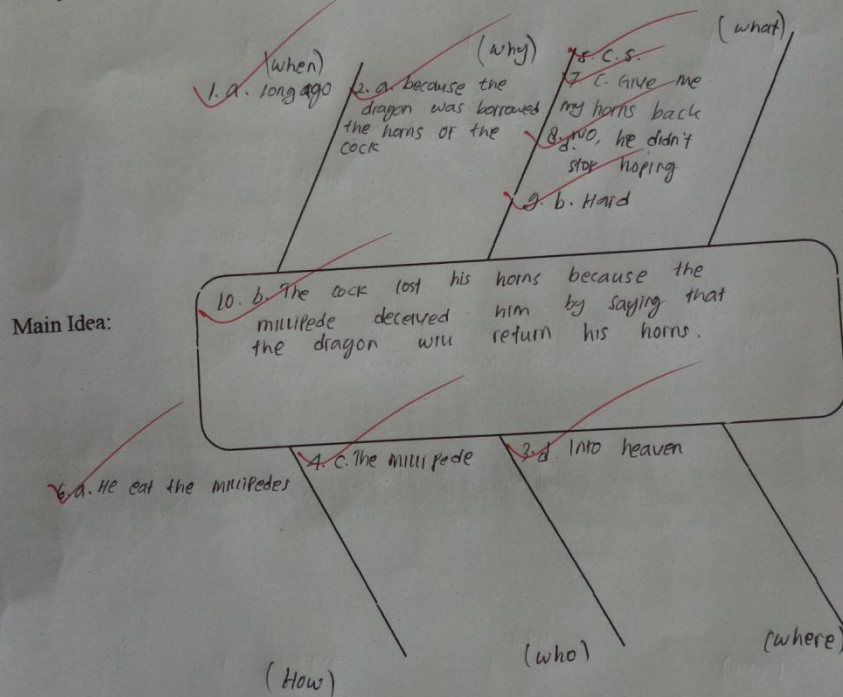 (when)
1. a. Long ago
(why)
2. a. because the
dragon was borrowed
the horns of the
cock
(what)
5. C. S.
7 C. Give me
my horns back
8. d. NO, he didn't
stop hoping
9. b. Hard
Main Idea:
10. b. The cock lost his horns because the
millipede deceived him by saying that
the dragon will return his horns.
6. a. He eat the millipedes
4. C. The millipede
3. d. Into heaven
(How)
(who)
(where)